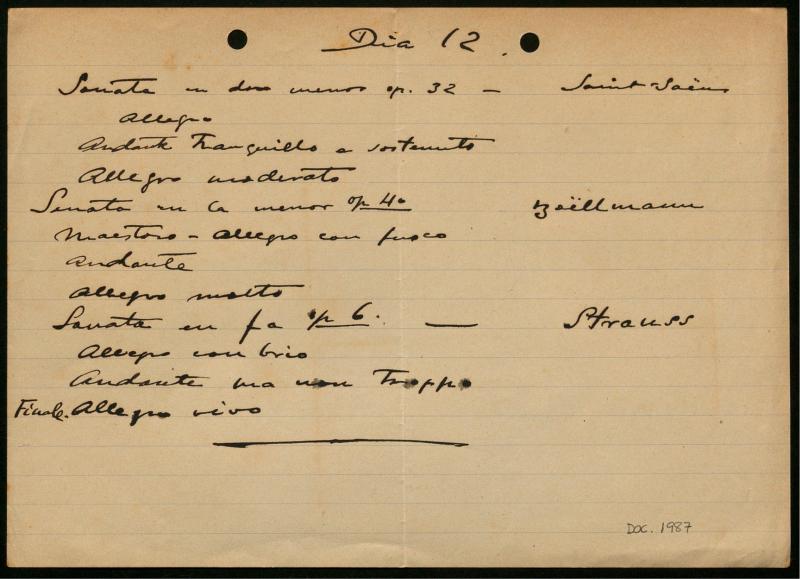 Dia 12.
Sonata en do menor op. 32 — Saint-Saëns
Allegro
Andante tranquillo e sostenuto
Allegro moderato
Sonata en la menor op 40 Boëllmann
Maestoso - Allegro con fuoco
Andante
Allegro molto
Sonata en fa op 6. — Strauss
Allegro con brio
Andante ma non troppo
Finale. Allegro vivo
DOC. 1987